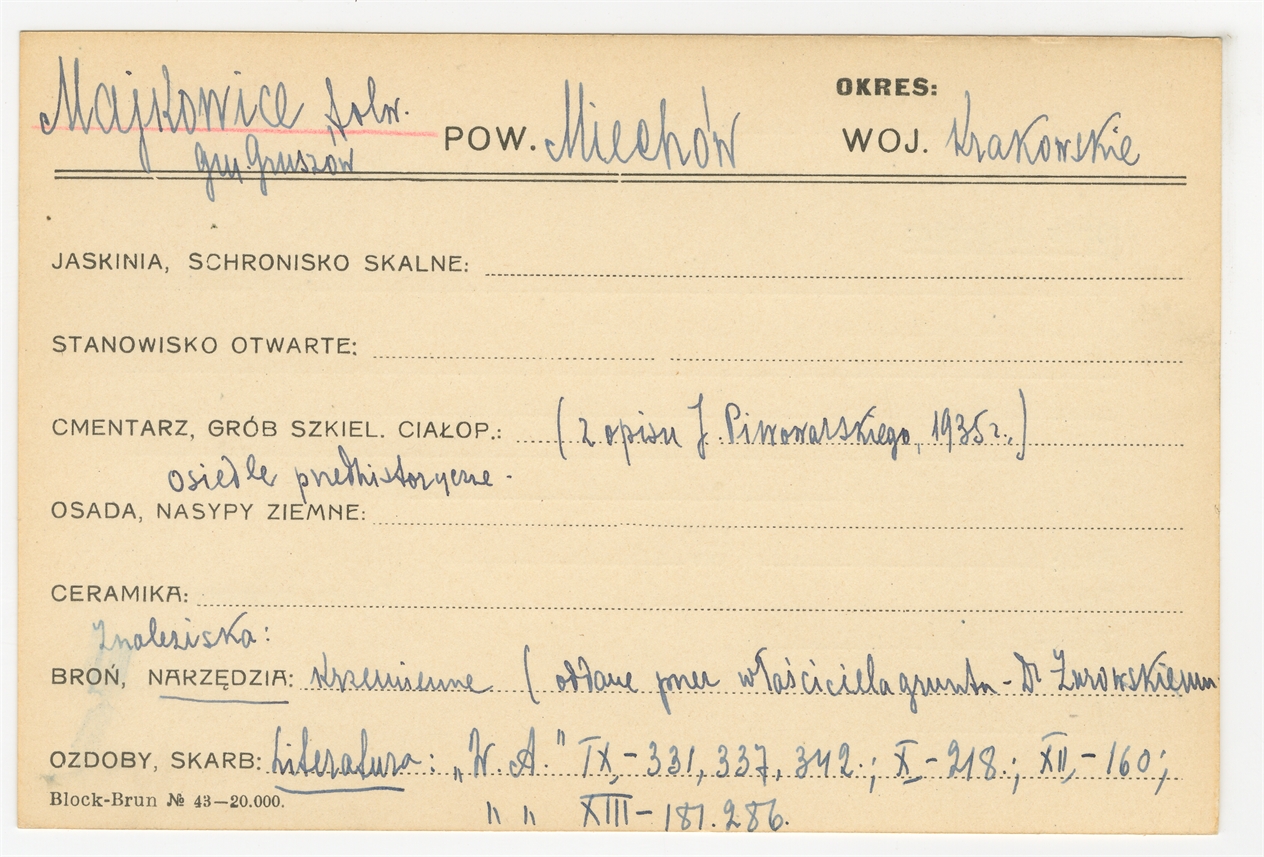 OKRES:
Majkowice folw. POW. Miechów WOJ. Krakowskie
gm. Gruszów
JASKINIA, SCHRONISKO SKALNE:
STANOWISKO OTWARTE:
CMENTARZ, GRÓB SZKIEL. CIAŁOP.: (z opisu J. Piwowarskiego, 1935 r.)
osiedle przedhistoryczne.
OSADA, NASYPY ZIEMNE:
CERAMIKA:
Znaleziska:
BROŃ, NARZĘDZIA: krzemienne (oddane przez właściciela gruntu - Dr Żurowskiemu
OZDOBY, SKARB: Literatura: „W. A." IX,-331, 337, 342.; X,-218.; XII,-160;
Block-Brun № 43—20.000.
" " XIII- 181. 286.